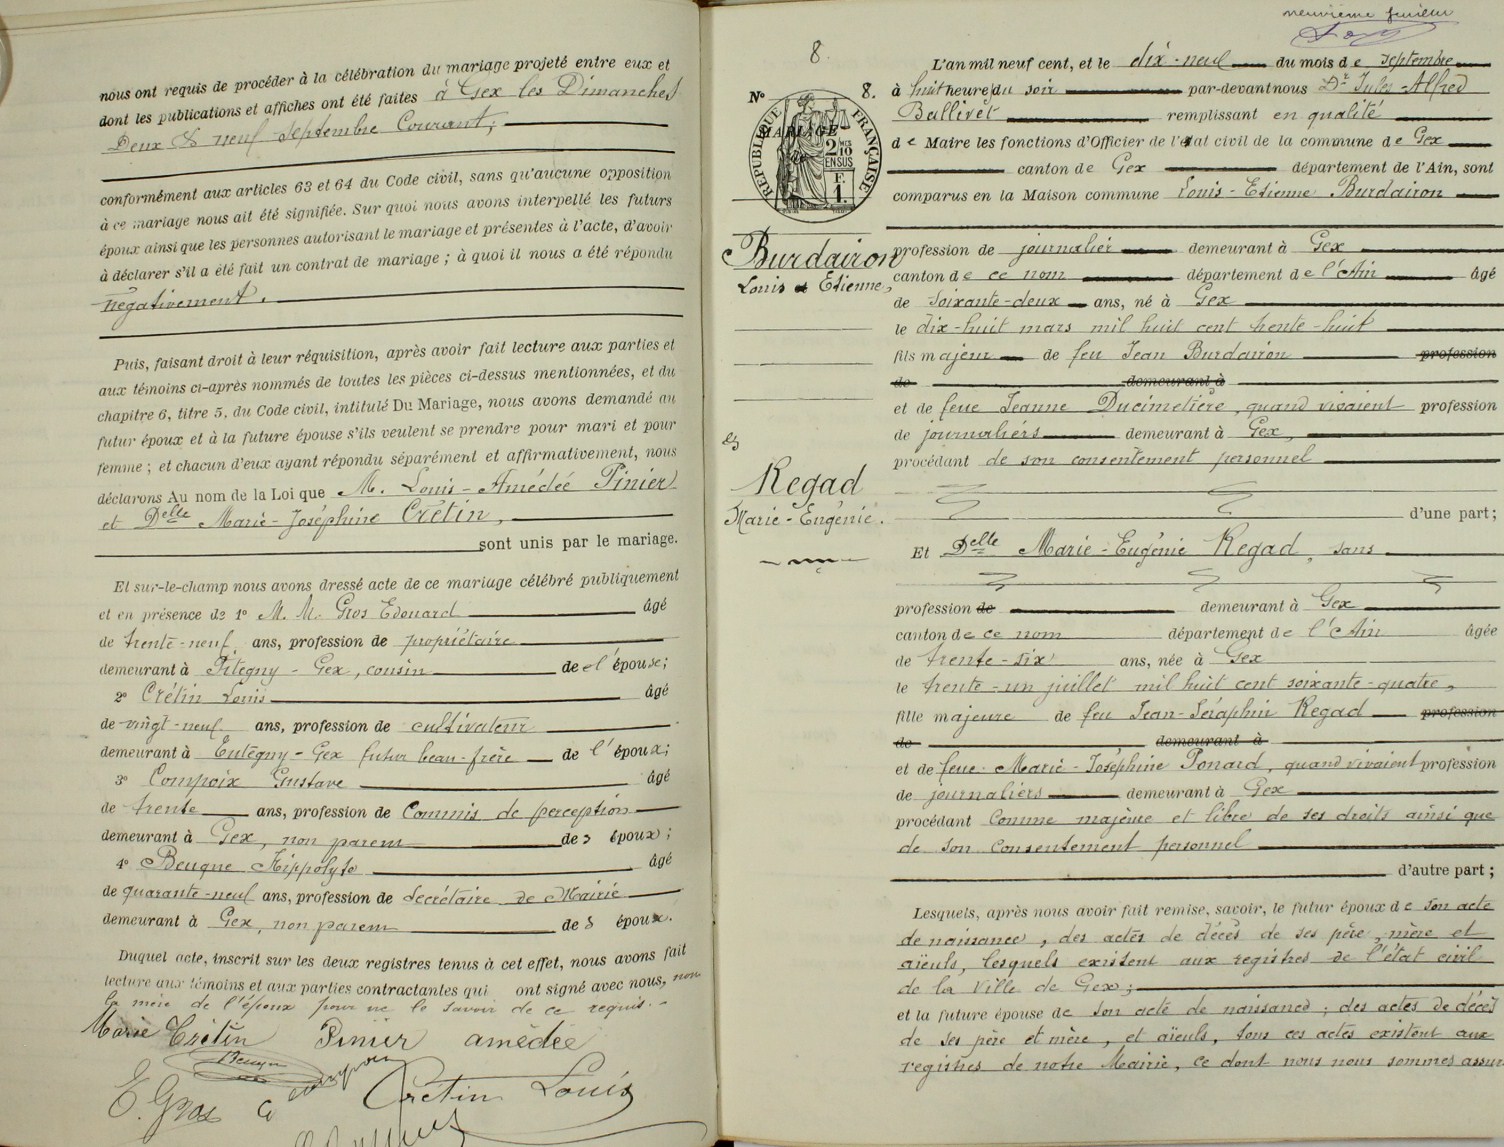 nous ont requis de procéder à la célébration du mariage projeté entre eux et
dont les publications et affiches ont été faites à Gex les Dimanches
Deux & neuf septembre Courant,
conformément aux articles 63 et 64 du Code civil, sans qu'aucune opposition
à ce mariage nous ait été signifiée. Sur quoi nous avons interpellé les futurs
époux ainsi que les personnes autorisant le mariage et présentes à l'acte, d'avoir
à déclarer s'il a été fait un contrat de mariage ; à quoi il nous a été répondu
négativement.
Puis, faisant droit à leur réquisition, après avoir fait lecture aux parties et
aux témoins ci-après nommés de toutes les pièces ci-dessus mentionnées, et du
chapitre 6, titre 5, du Code civil, intitulé Du Mariage, nous avons demandé au
futur époux et à la future épouse s'ils veulent se prendre pour mari et pour
femme ; et chacun d'eux ayant répondu séparément et affirmativement, nous
déclarons Au nom de la Loi que M. Louis-Amédée Pinier
et Delle Marie-Joséphine Crétin,
sont unis par le mariage.
Et sur-le-champ nous avons dressé acte de ce mariage célébré publiquement
et en présence de 1º M. M. Gros Edouard âgé
de trente-neuf ans, profession de propriétaire
demeurant à Pitegny-Gex, cousin de l'épouse;
2º Crétin Louis âgé
de vingt-neuf ans, profession de cultivateur
demeurant à Gex futur beau-frère de l'époux;
3º Compoix Gustave âgé
de trente ans, profession de Commis de perception
demeurant à Gex, non parent des époux ;
4º Beugne Hippolyte âgé
de quarante-neuf ans, profession de Secrétaire de Mairie
demeurant à Gex, non parent des époux.
Duquel acte, inscrit sur les deux registres tenus à cet effet, nous avons fait
lecture aux témoins et aux parties contractantes qui ont signé avec nous, non
la mère de l'époux pour ne le savoir de ce requis.
Marie Crétin Pinier amédée
E. Gros Cretin Louis
neuvième feuillet
8.
Nº 8.
MARIAGE
RÉPUBLIQUE FRANÇAISE
2/10 EN SUS
F. 1.
Burdairon
Louis Etienne,
et
Regad
Marie-Eugénie.
L'an mil neuf cent, et le dix-neuf du mois de septembre
à huit heures du soir par-devant nous Dr Jules Alfred
Ballivet remplissant en qualité
de Maire les fonctions d'Officier de l'état civil de la commune de Gex
canton de Gex département de l'Ain, sont
comparus en la Maison commune Louis-Etienne Burdairon
profession de journalier demeurant à Gex
canton de ce nom département de l'Ain âgé
de soixante-deux ans, né à Gex
le dix-huit mars mil huit cent trente-huit
fils majeur de feu Jean Burdairon profession
de demeurant à
et de feue Jeanne Ducimetière, quand vivaient profession
de journaliers demeurant à Gex,
procédant de son consentement personnel
d'une part;
Et Delle Marie-Eugénie Regad, sans
profession de demeurant à Gex
canton de ce nom département de l'Ain âgée
de trente-six ans, née à Gex
le trente-un juillet mil huit cent soixante-quatre,
fille majeure de feu Jean-Séraphin Regad profession
de demeurant à
et de feue Marie-Joséphine Ponard, quand vivaient profession
de journaliers demeurant à Gex
procédant comme majeure et libre de ses droits ainsi que
de son consentement personnel
d'autre part ;
Lesquels, après nous avoir fait remise, savoir, le futur époux de son acte
de naissance, des actes de décès de ses père, mère et
aïeuls, lesquels existent aux registres de l'état civil
de la ville de Gex;
et la future épouse de son acte de naissance ; des actes de décès
de ses père et mère, et aïeuls, tous ces actes existent aux
registres de notre Mairie, ce dont nous nous sommes assur